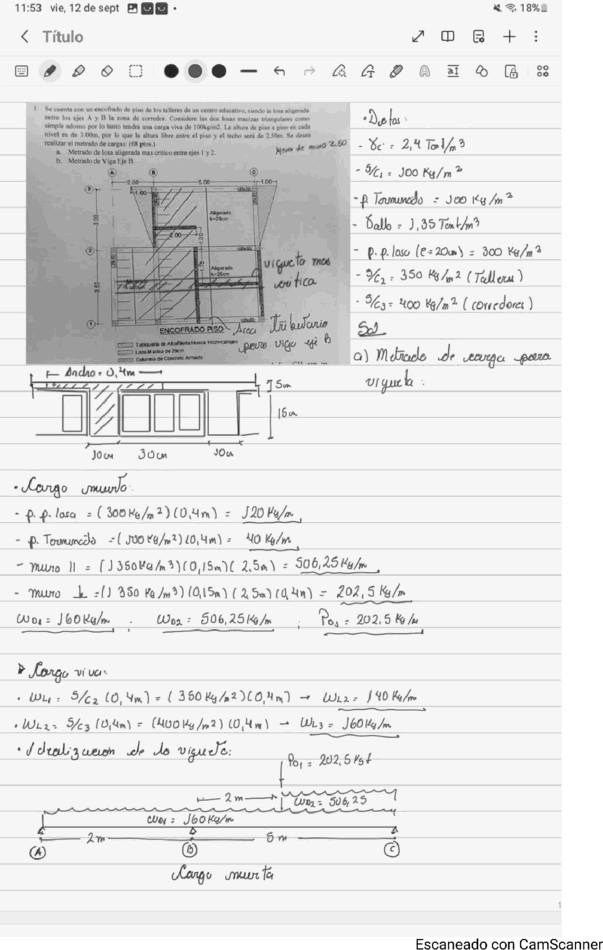 11:53 vie, 12 de sept
18%
Título
1. Se cuenta con un encofrado de piso de los talleres de un centro educativo, siendo la losa aligerada
entre los ejes A y B la zona de corredor. Considere las dos losas macizas triangulares como
simple adorno por lo tanto tendrá una carga viva de 100kg/m2. La altura de piso a piso en cada
nivel es de 3.00m, por lo que la altura libre entre el piso y el techo será de 2.50m. Se desea
realizar el metrado de cargas: (08 ptos.)
Altura de muro 2.50
a. Metrado de losa aligerada mas crítico entre ejes 1 y 2.
b. Metrado de Viga Eje B.
A B C
2.00 5.00 1.00
1.60
Aligerado
h=20cm
2.00
1.00
Aligerado
h=20cm
vigueta mas
crítica
ENCOFRADO PISO
Area tributario
para viga eje B
Losa Maciza de 20cm
Columna de Concreto Armado
• Datos:
- γc = 2,4 Tonf/m³
- S/C1 = 100 Kg/m²
- p. Terminado = 100 Kg/m²
- γallb = 1,35 Tonf/m³
- p.p. losa (e=20cm) = 300 Kg/m²
- S/C2 = 350 Kg/m² (Talleres)
- S/C3 = 400 Kg/m² (corredores)
Sol
a) Metrado de carga para
vigueta:
Ancho = 0,4m
5cm
15cm
10cm 30cm 10cm
• Carga muerta:
- p.p. losa = (300 Kg/m²)(0,4m) = 120 Kg/m
- p. Terminado = (100 Kg/m²)(0,4m) = 40 Kg/m
- muro || = (1350 Kg/m³)(0,15m)(2,5m) = 506,25 Kg/m
- muro ⊥ = (1350 Kg/m³)(0,15m)(2,5m)(0,4m) = 202,5 Kg/m
WD1 = 160 Kg/m ; WD2 = 506,25 Kg/m ; PD1 = 202,5 Kg/m
Carga viva:
• WL1 = S/C2 (0,4m) = (350 Kg/m²)(0,4m) → WL2 = 140 Kg/m
• WL2 = S/C3 (0,4m) = (400 Kg/m²)(0,4m) → WL3 = 160 Kg/m
• Idealización de la vigueta:
PD1 = 202,5 Kgf
2m
WD2 = 506,25
WD1 = 160 Kg/m
2m 5m
A B C
Carga muerta
1
Escaneado con CamScanner